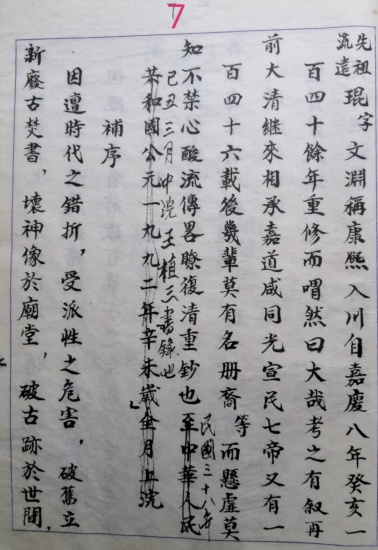 7
先祖琨字文淵稱康熙入川自嘉慶八年癸亥一
流遠
百四十餘年重修而喟然曰大哉考之有叙再
前大清継來相承嘉道咸同光宣民七帝又有一
百四十六載後幾輩莫有名册裔等而懸虛莫
知不禁心酸流傳畧瞭復清重鈔也至中華人民
民國三十八年
己丑三月中浣王植三書錄也
共和國公元一九九二年辛未歲全月上浣
補序
因遭時代之錯折，受派性之危害，破舊立
新廢古焚書，壞神像於廟堂，破古跡於世間，